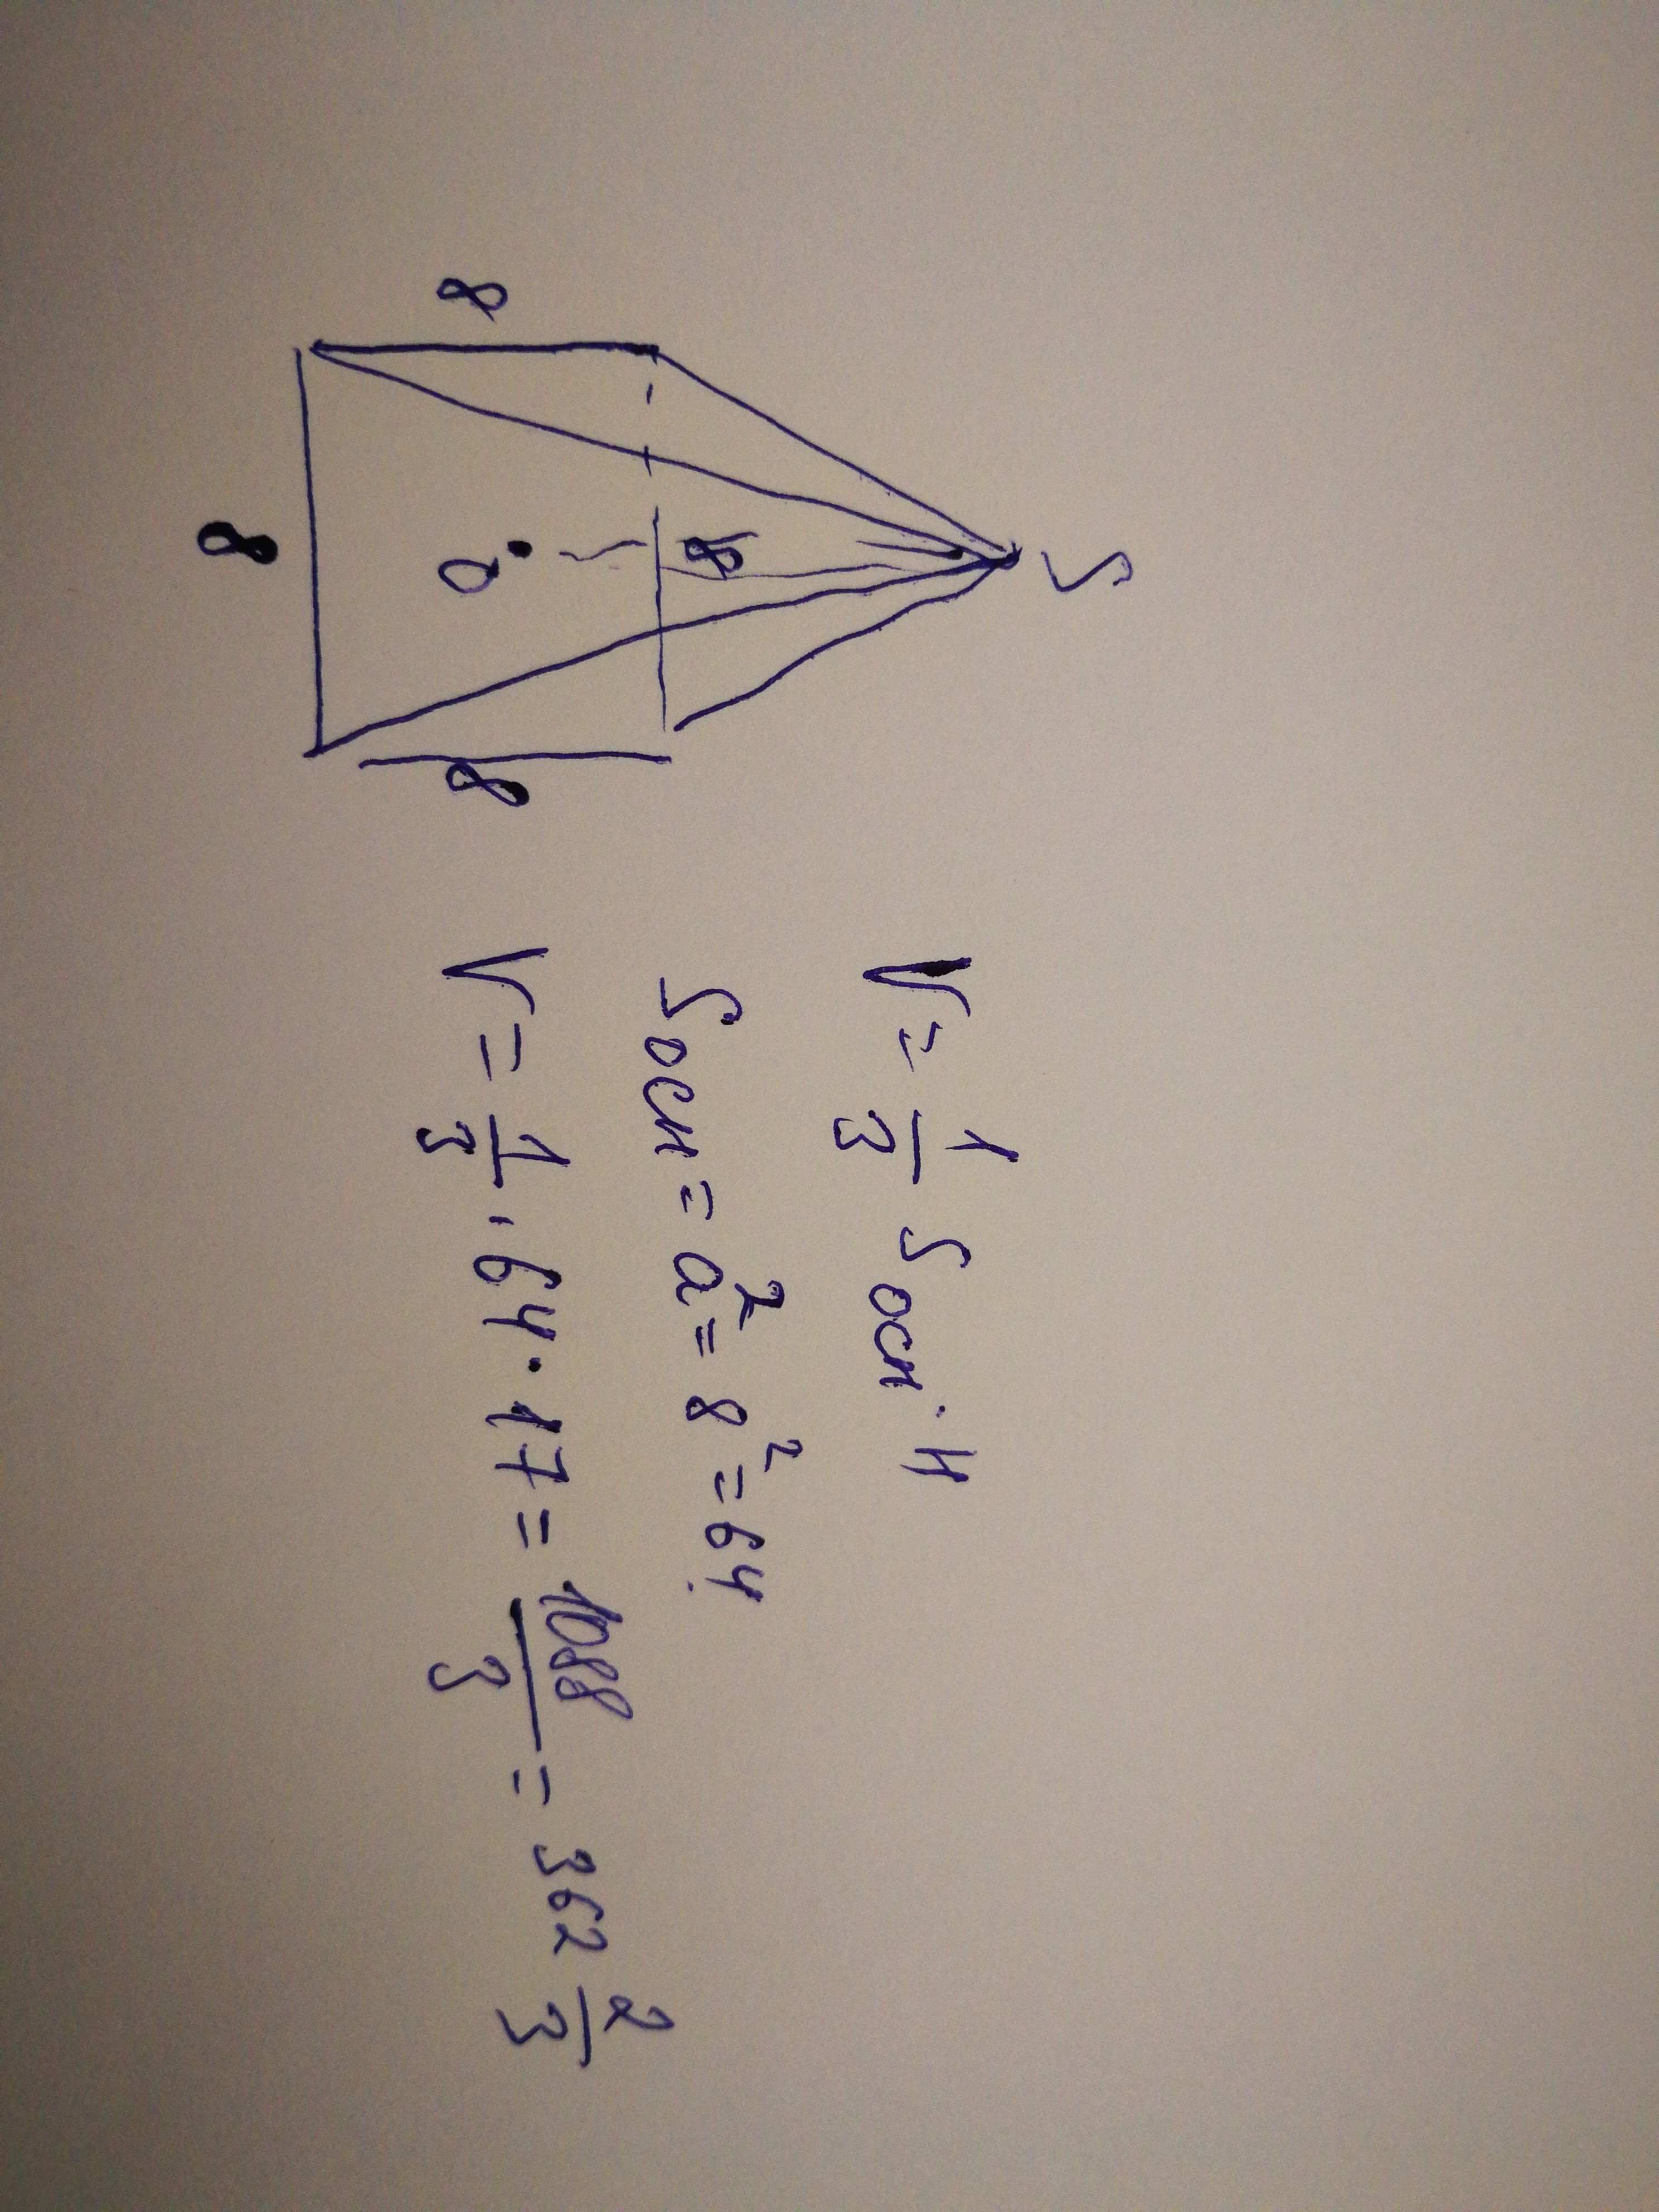 S
8
8
8
8
O
V = 1/3 Sосн · H
Sосн = a² = 8² = 64
V = 1/3 · 64 · 17 = 1088/3 = 362 2/3